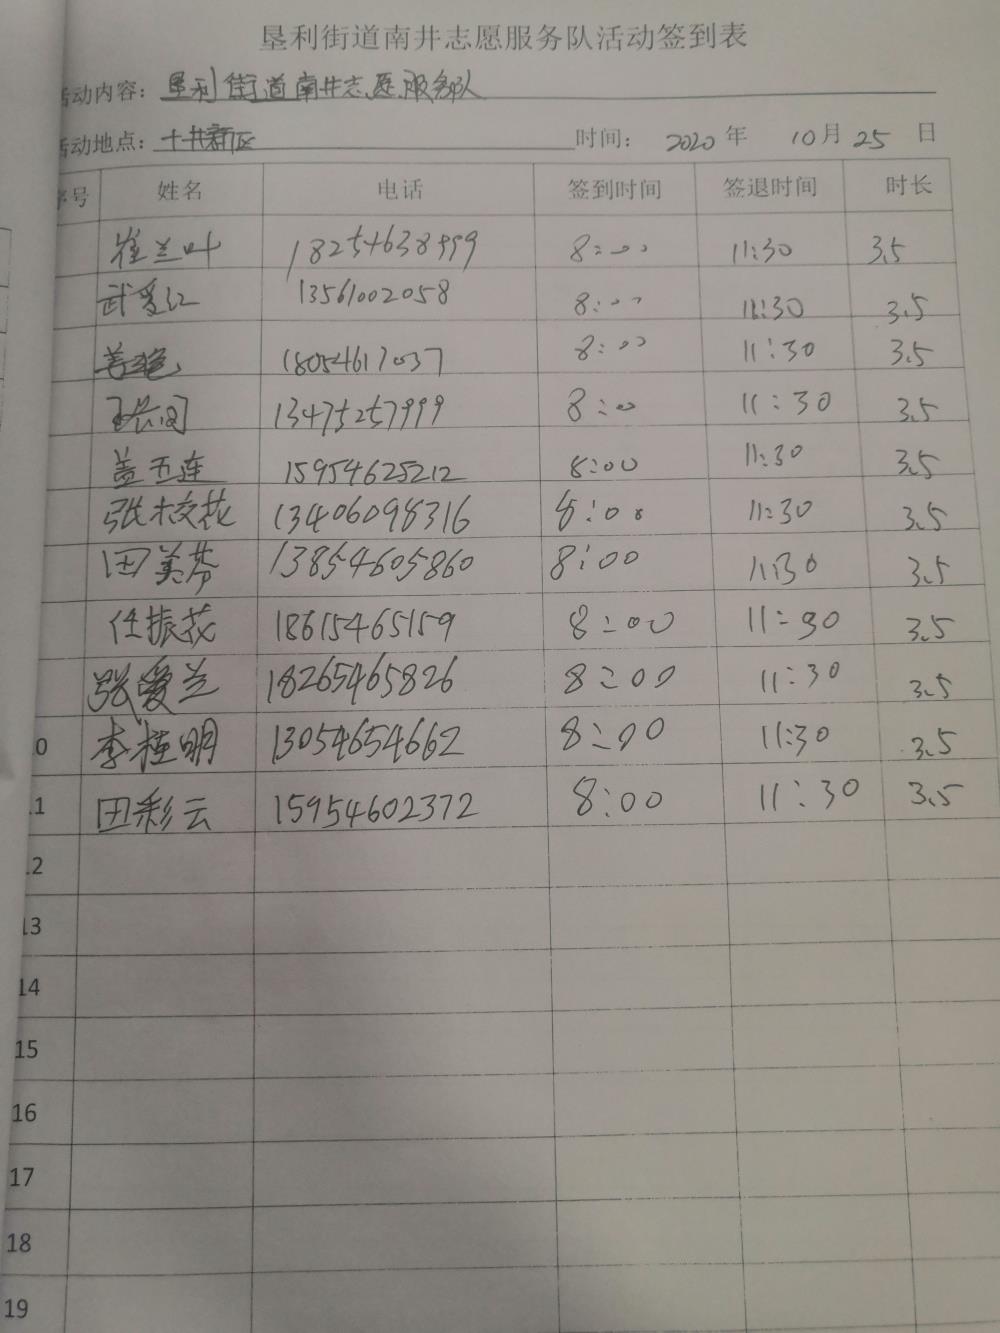 垦利街道南井志愿服务队活动签到表
活动内容：垦利街道南井志愿服务队
活动地点： 时间： 2020年 10月25日
序号 姓名 电话 签到时间 签退时间 时长
崔兰叶 18254638999 8:00 11:30 3.5
武爱红 13561002058 8:00 11:30 3.5
18054617037 8:00 11:30 3.5
13475257999 8:00 11:30 3.5
盖五连 15954625212 8:00 11:30 3.5
张校花 13406098316 8:00 11:30 3.5
田美芬 13854605860 8:00 11:30 3.5
任振花 18615465159 8:00 11:30 3.5
张爱兰 18265465826 8:00 11:30 3.5
0 李桂明 13054654662 8:00 11:30 3.5
1 田彩云 15954602372 8:00 11:30 3.5
2
13
14
15
16
17
18
19